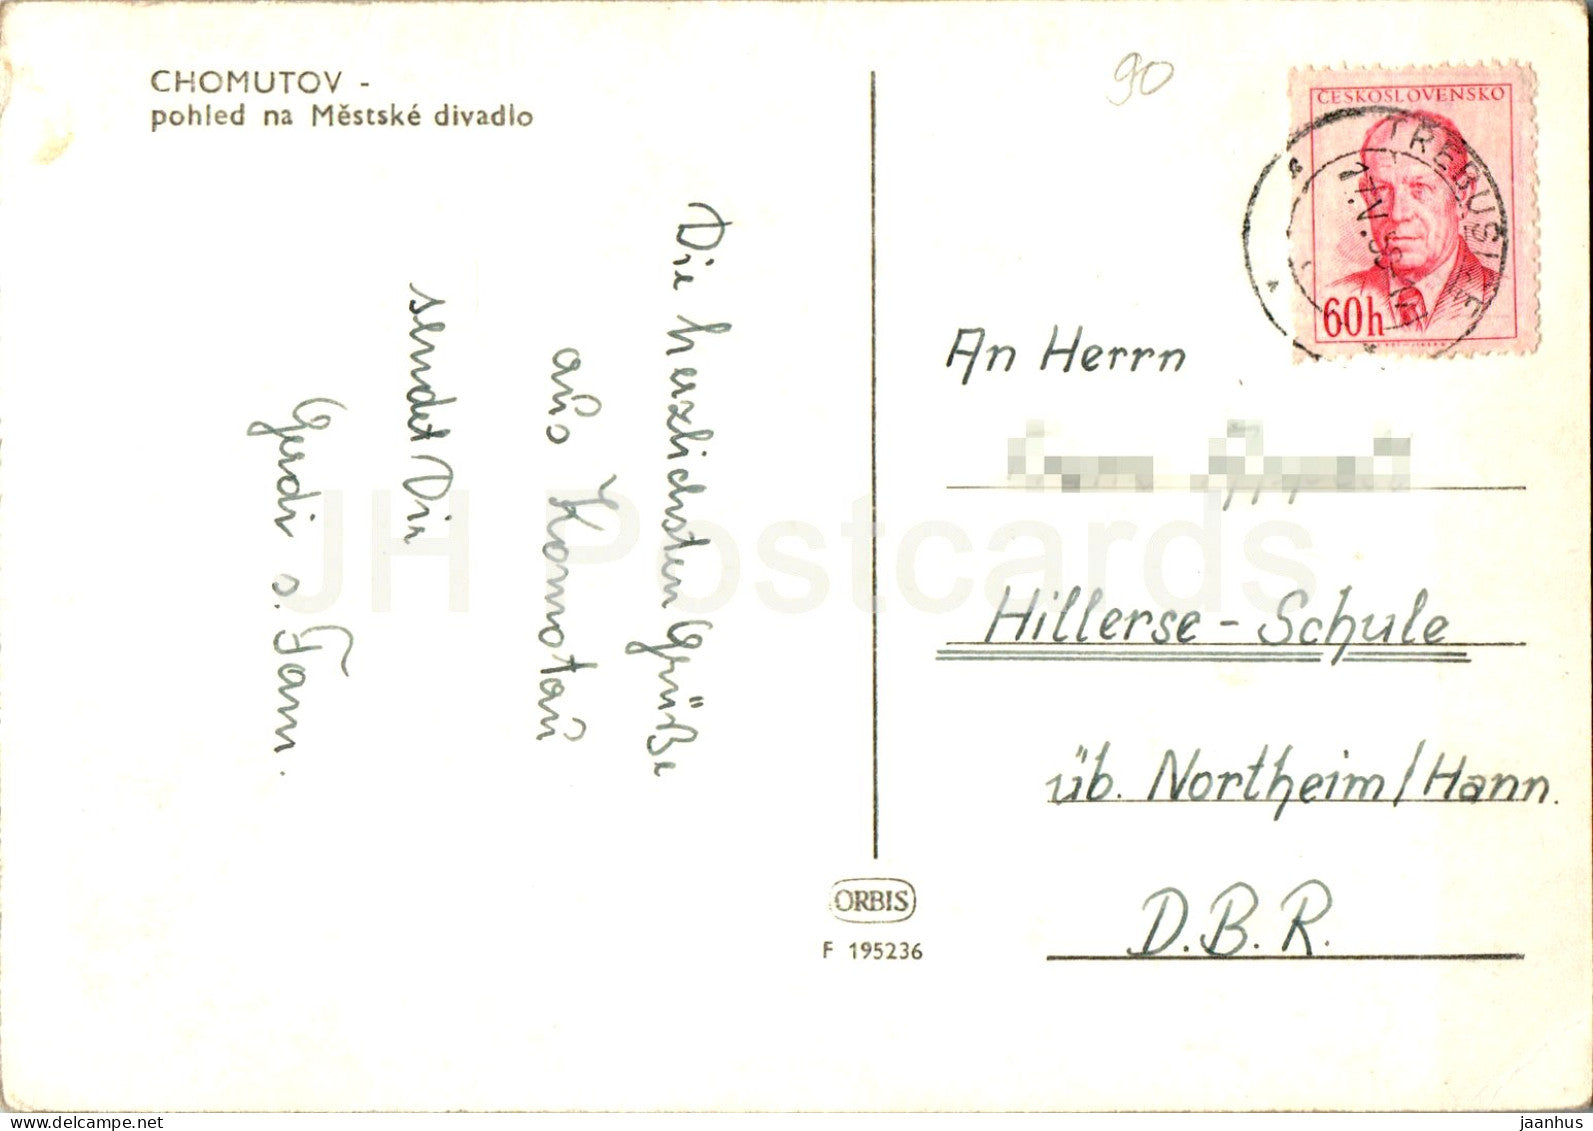 CHOMUTOV -
pohled na Městské divadlo
90
ČESKOSLOVENSKO
60h
TŘEBUŠ
Die herzlichsten Grüße
aus Komotau
sendet Dir
Gerdi s. Fam.
An Herrn
Hillerse - Schule
üb. Northeim/Hann.
D.B.R.
ORBIS
F 195236
JH Postcards
delcampe.net
jaanhus